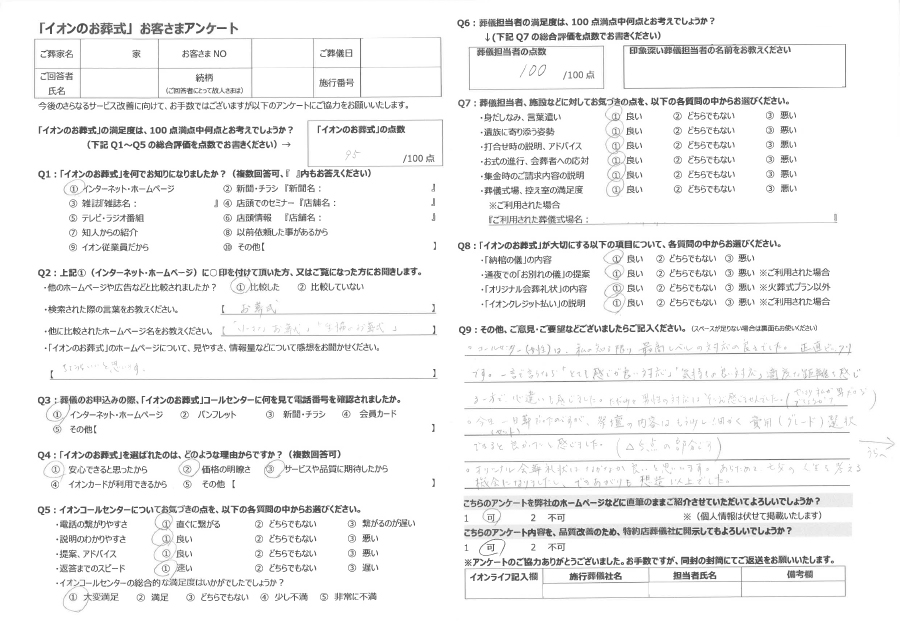 「イオンのお葬式」お客さまアンケート
ご葬家名 家 お客さまNO ご葬儀日
ご回答者氏名 続柄（ご回答者にとって故人さまは） 施行番号
今後のさらなるサービス改善に向けて、お手数ではございますが以下のアンケートにご協力をお願いいたします。
「イオンのお葬式」の満足度は、100点満点中何点とお考えでしょうか？
（下記Q1〜Q5の総合評価を点数でお書きください）→
「イオンのお葬式」の点数
95 /100点
Q1：「イオンのお葬式」を何でお知りになりましたか？（複数回答可、『 』内もお答えください）
① インターネット・ホームページ ② 新聞・チラシ『新聞名： 』
③ 雑誌『雑誌名： 』 ④ 店頭でのセミナー『店舗名： 』
⑤ テレビ・ラジオ番組 ⑥ 店頭情報 『店舗名： 』
⑦ 知人からの紹介 ⑧ 以前依頼した事があるから
⑨ イオン従業員だから ⑩ その他【 】
Q2：上記①（インターネット・ホームページ）に○印を付けて頂いた方、又はご覧になった方にお聞きします。
・他のホームページや広告などと比較されましたか？ ① 比較した ② 比較していない
・検索された際の言葉をお教えください。 【 お葬式 】
・他に比較されたホームページ名をお教えください。【「小さなお葬式」「生協のお葬式」】
・「イオンのお葬式」のホームページについて、見やすさ、情報量などについて感想をお聞かせください。
【 】
Q3：葬儀のお申込みの際、「イオンのお葬式」コールセンターに何を見て電話番号を確認されましたか。
① インターネット・ホームページ ② パンフレット ③ 新聞・チラシ ④ 会員カード
⑤ その他【 】
Q4：「イオンのお葬式」を選ばれたのは、どのような理由からですか？（複数回答可）
① 安心できると思ったから ② 価格の明瞭さ ③ サービスや品質に期待したから
④ イオンカードが利用できるから ⑤ その他 【 】
Q5：イオンコールセンターについてお気づきの点を、以下の各質問の中からお選びください。
・電話の繋がりやすさ ① 直ぐに繋がる ② どちらでもない ③ 繋がるのが遅い
・説明のわかりやすさ ① 良い ② どちらでもない ③ 悪い
・提案、アドバイス ① 良い ② どちらでもない ③ 悪い
・返答までのスピード ① 速い ② どちらでもない ③ 遅い
・イオンコールセンターの総合的な満足度はいかがでしたでしょうか？
① 大変満足 ② 満足 ③ どちらでもない ④ 少し不満 ⑤ 非常に不満
Q6：葬儀担当者の満足度は、100点満点中何点とお考えでしょうか？
↓（下記Q7の総合評価を点数でお書きください）
葬儀担当者の点数
100 /100点
印象深い葬儀担当者の名前をお教えください
Q7：葬儀担当者、施設などに対してお気づきの点を、以下の各質問の中からお選びください。
・身だしなみ、言葉遣い ① 良い ② どちらでもない ③ 悪い
・遺族に寄り添う姿勢 ① 良い ② どちらでもない ③ 悪い
・打合せ時の説明、アドバイス ① 良い ② どちらでもない ③ 悪い
・お式の進行、会葬者への応対 ① 良い ② どちらでもない ③ 悪い
・集金時のご請求内容の説明 ① 良い ② どちらでもない ③ 悪い
・葬儀式場、控え室の満足度 ① 良い ② どちらでもない ③ 悪い
※ご利用された場合
『ご利用された葬儀式場名： 』
Q8：「イオンのお葬式」が大切にする以下の項目について、各質問の中からお選びください。
・「納棺の儀」の内容 ① 良い ② どちらでもない ③ 悪い
・通夜での「お別れの儀」の提案 ① 良い ② どちらでもない ③ 悪い ※ご利用された場合
・「オリジナル会葬礼状」の内容 ① 良い ② どちらでもない ③ 悪い ※火葬式プラン以外
・「イオンクレジット払い」の説明 ① 良い ② どちらでもない ③ 悪い ※ご利用された場合
Q9：その他、ご意見・ご要望などございましたらご記入ください。（スペースが足りない場合は裏面もお使いください）
。コールセンター（女性）は、私の 限り最高レベルの対応の良さでした。正直
です。一言で言うなら「とても感じが良い対応」「気持ち良い対応」適度な距離を感じ
（△5点の部分）
こちらのアンケートを弊社のホームページなどに直筆のままご紹介させていただいてよろしいでしょうか？
1 可 2 不可 ※（個人情報は伏せて掲載いたします）
こちらのアンケート内容を、品質改善のため、特約店葬儀社に開示してもよろしいでしょうか？
1 可 2 不可
※アンケートのご協力ありがとうございました。お手数ですが、同封の封筒にてご返送をお願いいたします。
イオンライフ記入欄 施行葬儀社名 担当者氏名 備考欄